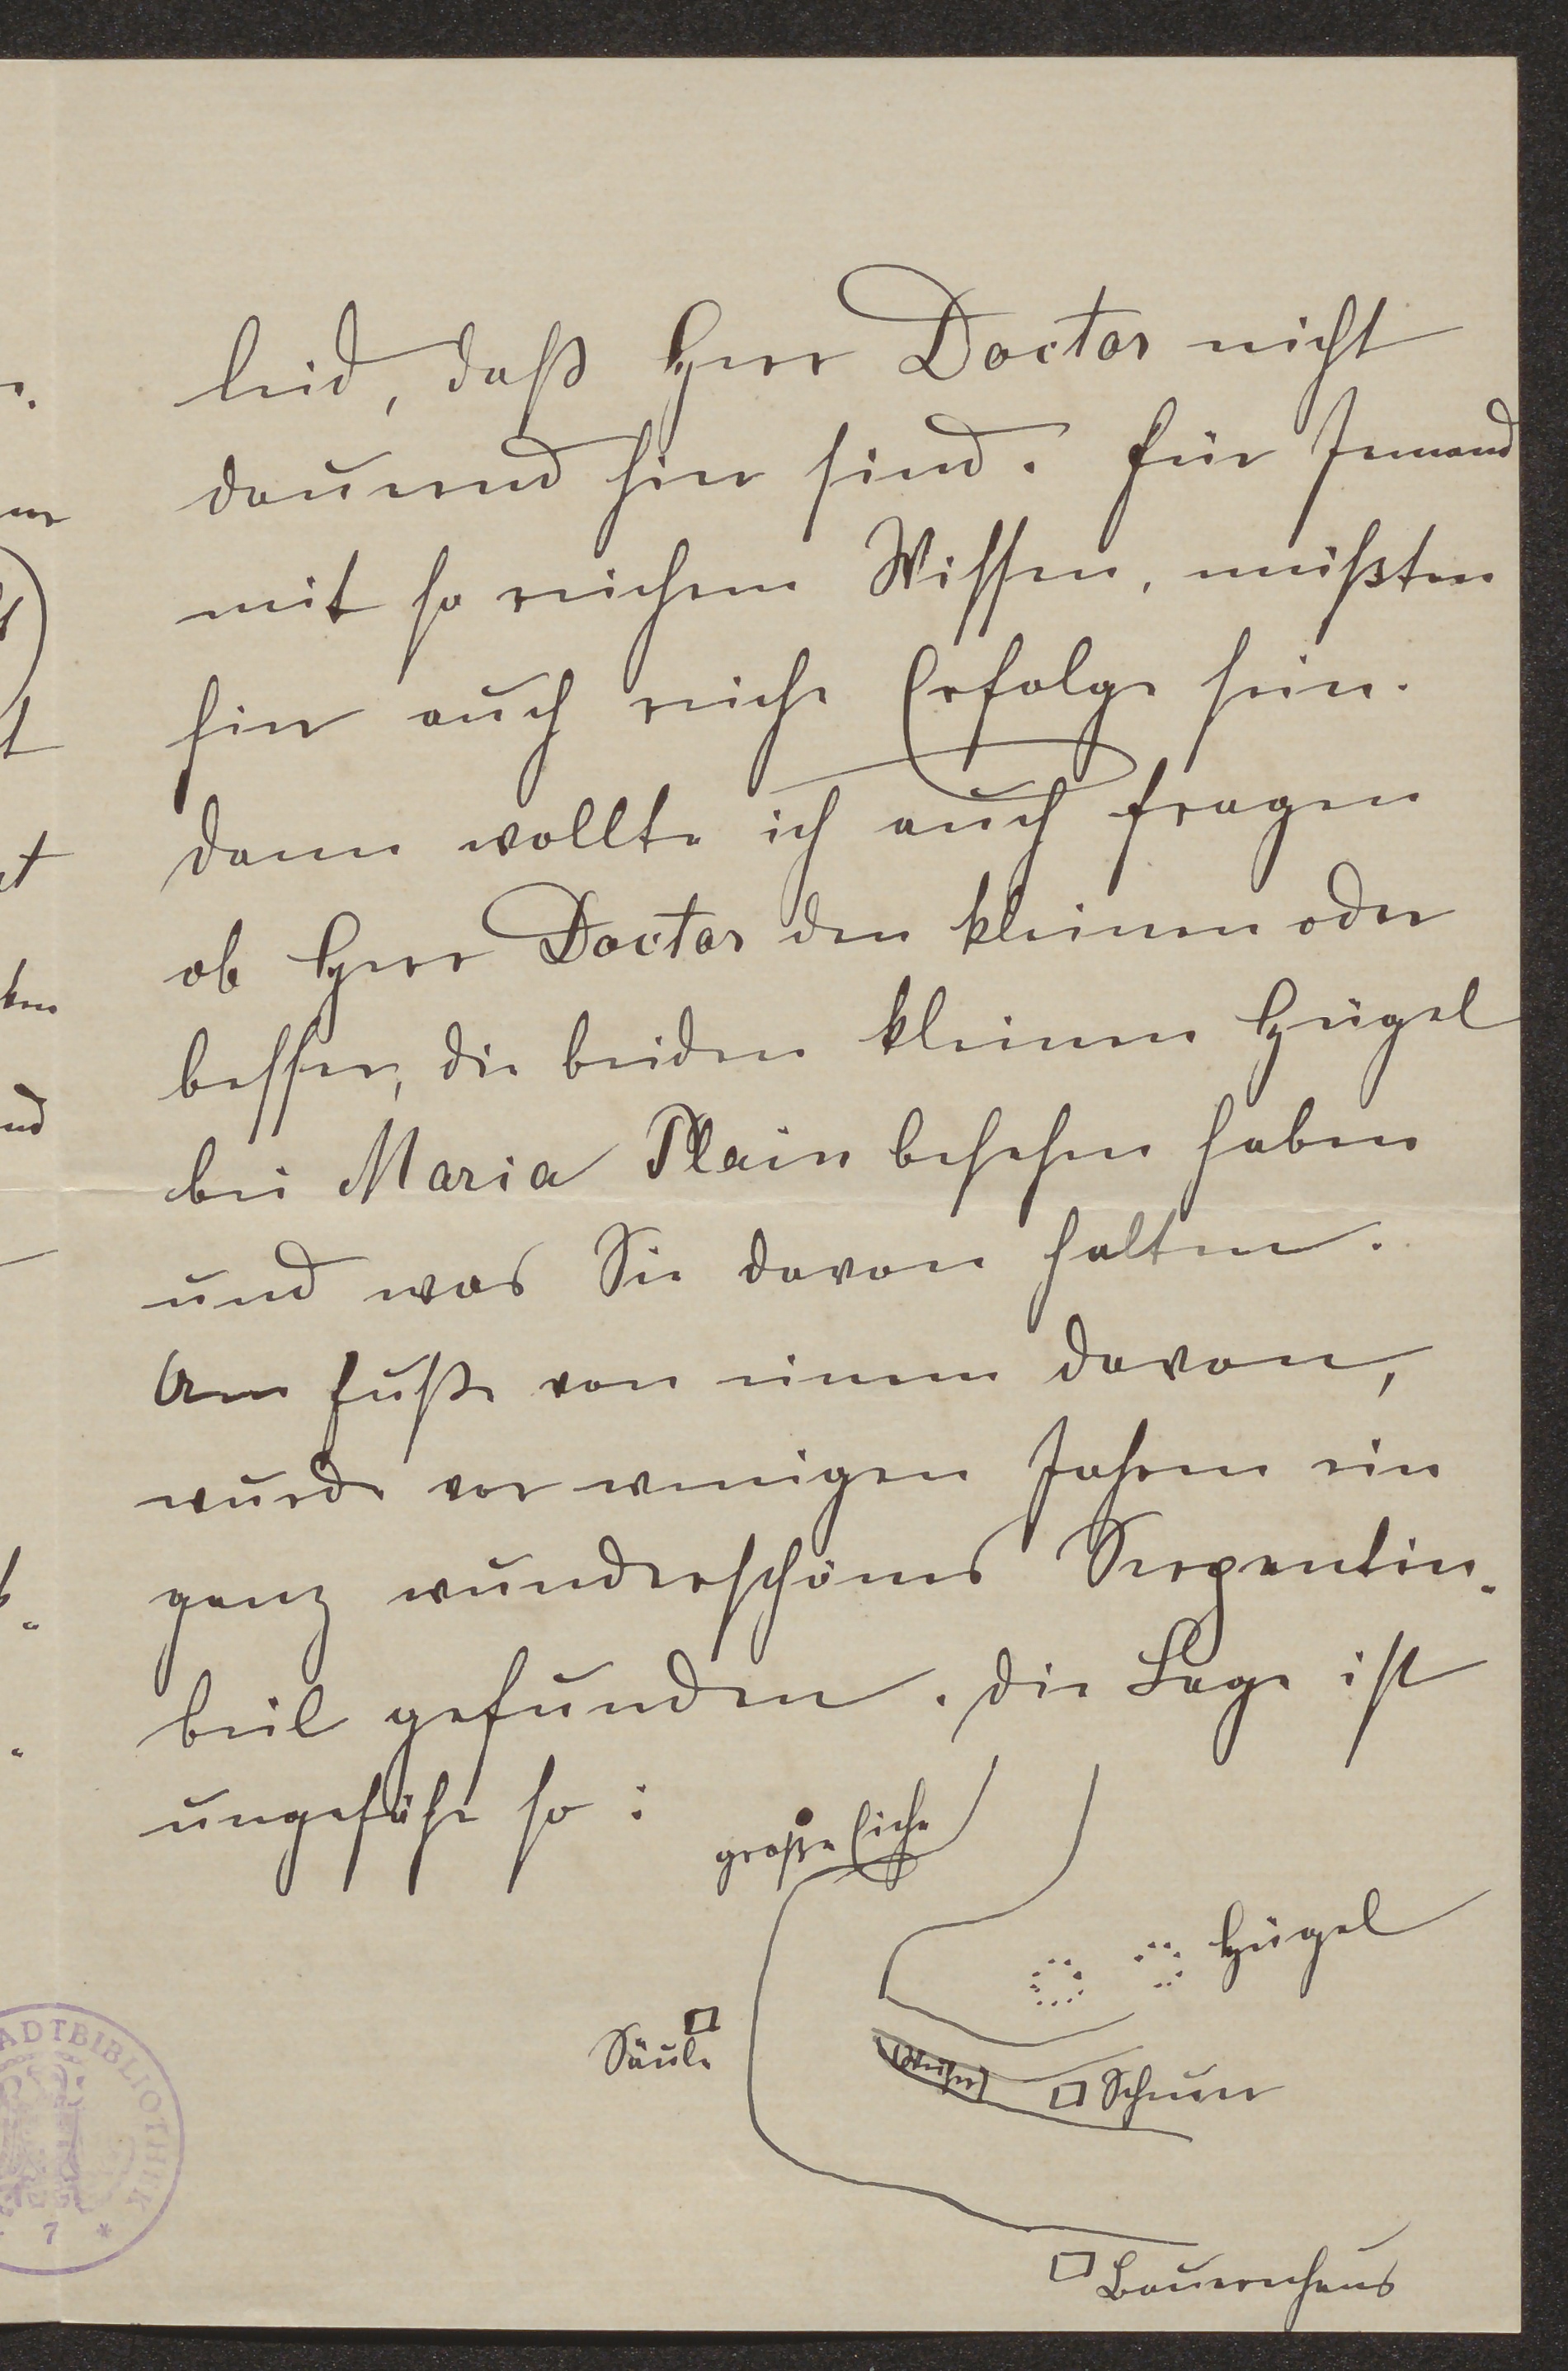 leid, daß Herr Doctor nicht
dauernd hier sind. Für Jemand
mit so reichem Wissen, müßten
hier auch reiche Erfolge sein.
Dann wollte ich auch fragen
ob Herr Doctor den kleinen oder
besser, die beiden kleinen Hügel
bei Maria Plain besehen haben
und was Sie davon halten.
Am Fuße von einem davon,
wurde vor wenigen Jahren ein
ganz wunderschönes Serpentin-
beil gefunden. Die Lage ist
ungefähr so:
große Eiche
Hügel
Säule
Weiher
Scheuer
Bauernhaus
ADTBIBLIOTHEK
7 *